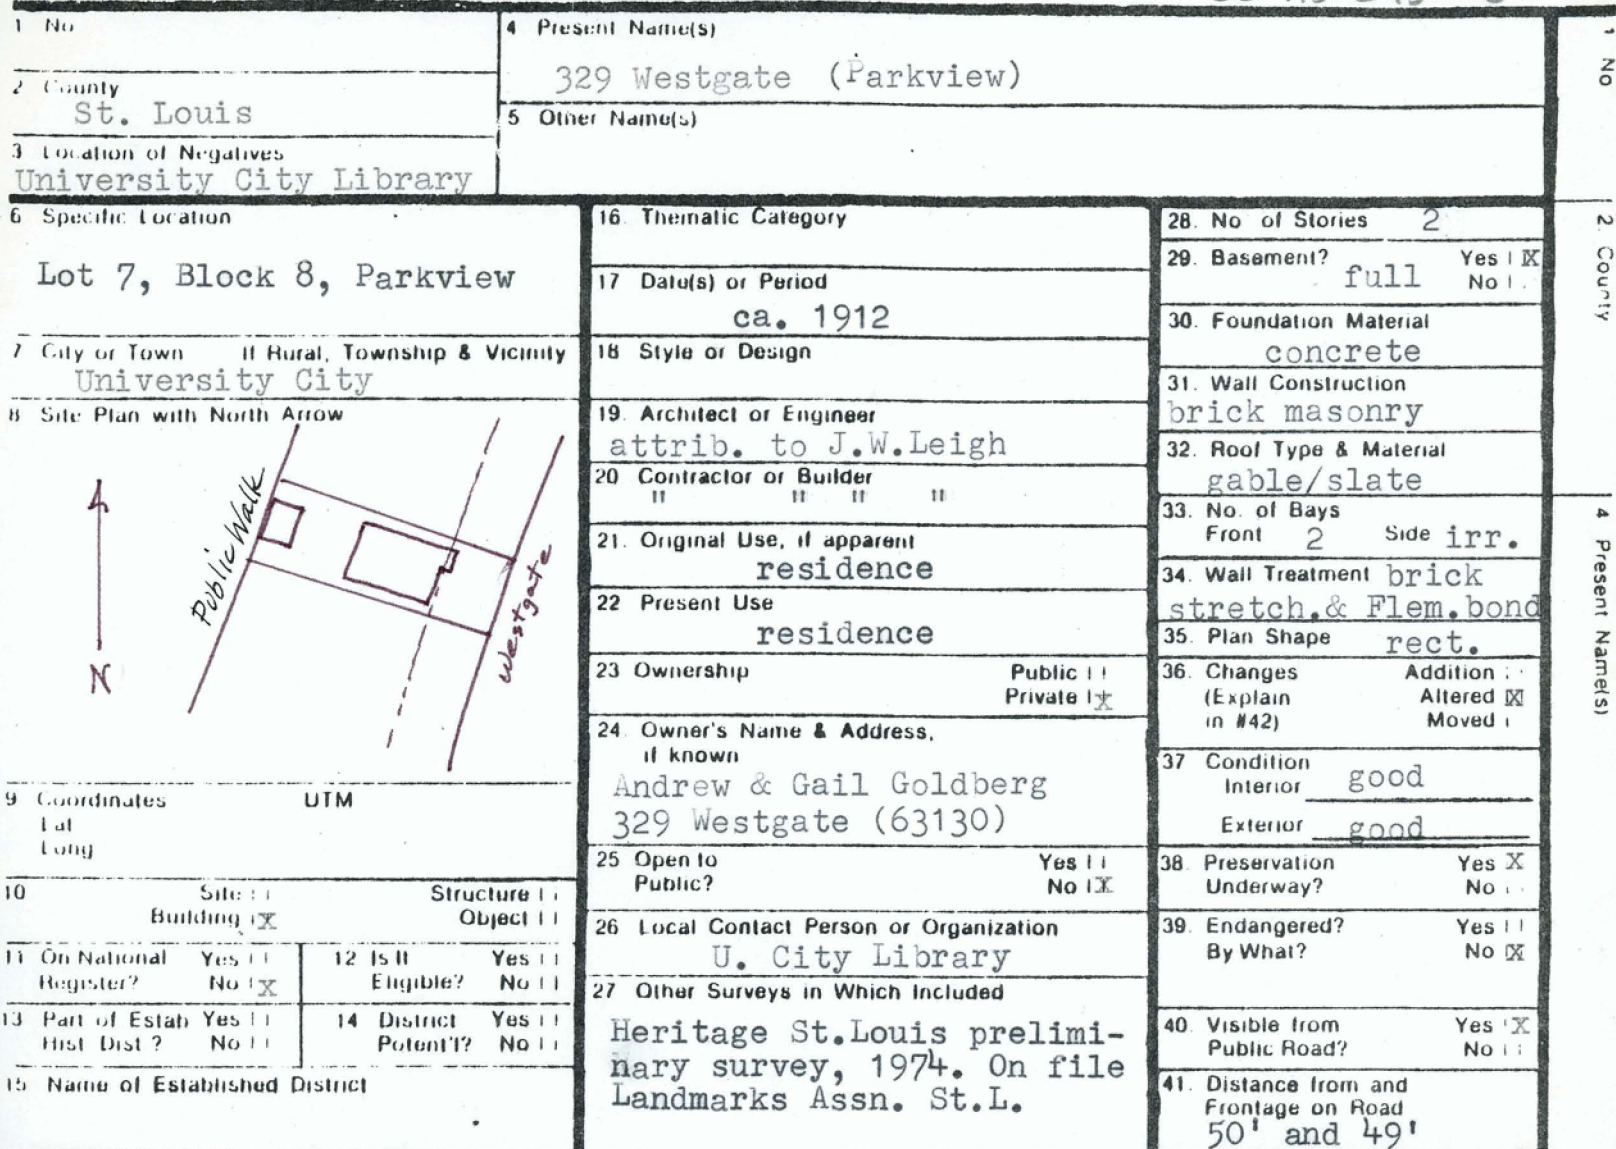 1 No
4 Present Name(s)
329 Westgate (Parkview)
2 County
St. Louis
5 Other Name(s)
3 Location of Negatives
University City Library
6 Specific Location
Lot 7, Block 8, Parkview
7 City or Town If Rural, Township & Vicinity
University City
8 Site Plan with North Arrow
Public Walk
Westgate
N
9 Coordinates UTM
Lat
Long
10 Site Structure
Building X Object
11 On National Yes
Register? No X
12 Is It Yes
Eligible? No
13 Part of Estab Yes
Hist Dist ? No
14 District Yes
Potent'l? No
15 Name of Established District
16. Thematic Category
17 Date(s) or Period
ca. 1912
18 Style or Design
19. Architect or Engineer
attrib. to J.W.Leigh
20 Contractor or Builder
" " " "
21. Original Use, if apparent
residence
22 Present Use
residence
23 Ownership Public
Private X
24. Owner's Name & Address,
if known
Andrew & Gail Goldberg
329 Westgate (63130)
25 Open to Yes
Public? No X
26 Local Contact Person or Organization
U. City Library
27 Other Surveys in Which Included
Heritage St.Louis prelimi-
nary survey, 1974. On file
Landmarks Assn. St.L.
28. No of Stories 2
29. Basement? Yes X
full No
30. Foundation Material
concrete
31. Wall Construction
brick masonry
32. Roof Type & Material
gable/slate
33. No. of Bays
Front 2 Side irr.
34. Wall Treatment brick
stretch.& Flem.bond
35. Plan Shape rect.
36. Changes Addition
(Explain Altered X
in #42) Moved
37 Condition
Interior good
Exterior good
38. Preservation Yes X
Underway? No
39. Endangered? Yes
By What? No X
40. Visible from Yes X
Public Road? No
41. Distance from and
Frontage on Road
50' and 49'
1 No
2. County
4 Present Name(s)